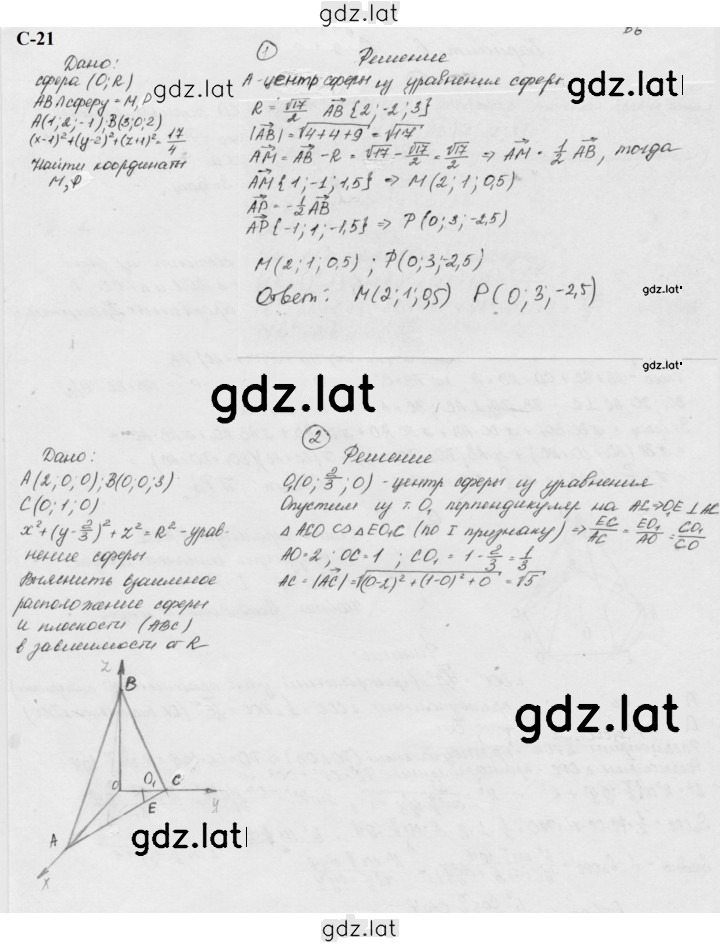 gdz.lat
С-21
В6
Дано:
сфера (О; R)
AB∩сферу = M, P
A(1; 2; -1); B(3; 0; 2)
(x-1)²+(y-2)²+(z+1)²=17/4
Найти координаты
M, P
1
Решение
A - центр сферы из уравнения сферы
R = √17/2 AB{2; -2; 3}
|AB| = √4+4+9 = √17
AM = AB - R = √17 - √17/2 = √17/2 ⇒ AM = 1/2 AB, тогда
AM{1; -1; 1,5} ⇒ M(2; 1; 0,5)
AP = -1/2 AB
AP{-1; 1; -1,5} ⇒ P(0; 3; -2,5)
M(2; 1; 0,5) ; P(0; 3; -2,5)
Ответ: M(2; 1; 0,5) P(0; 3; -2,5)
gdz.lat
gdz.lat
gdz.lat
2
Дано:
A(2; 0; 0); B(0; 0; 3)
C(0; 1; 0)
x²+(y-2/3)²+z²=R² - урав-
нение сферы
Выяснить взаимное
расположение сферы
и плоскости (ABC)
в зависимости от R
Решение
O₁(0; 2/3; 0) - центр сферы из уравнения
Опустим из т. O₁ перпендикуляр на AC ⇒ O₁E ⊥ AC
△ACO ∽ △EO₁C (по I признаку) ⇒ EC/AC = EO₁/AO = CO₁/CO
AO = 2 ; OC = 1 ; CO₁ = 1 - 2/3 = 1/3
AC = |AC| = √(0-2)²+(1-0)²+0 = √5
z
B
O O₁ C
y
E
A
x
gdz.lat
gdz.lat
gdz.lat